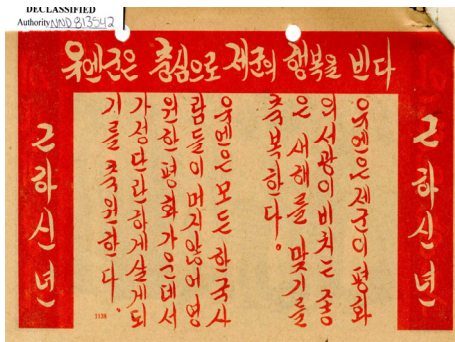 DECLASSIFIED
Authority NND 813542
유엔군은 충심으로 제군의 행복을 빈다
근하신년
유엔은 제군이 평화
의 서광이 비치는 좋
은 새해를 맞기를
축복한다。
유엔은 모든 한국사
람들이 머지않어 영
원한 평화 가운데서
가정단란하게 살게되
기를 축원한다.
근하신년
1138